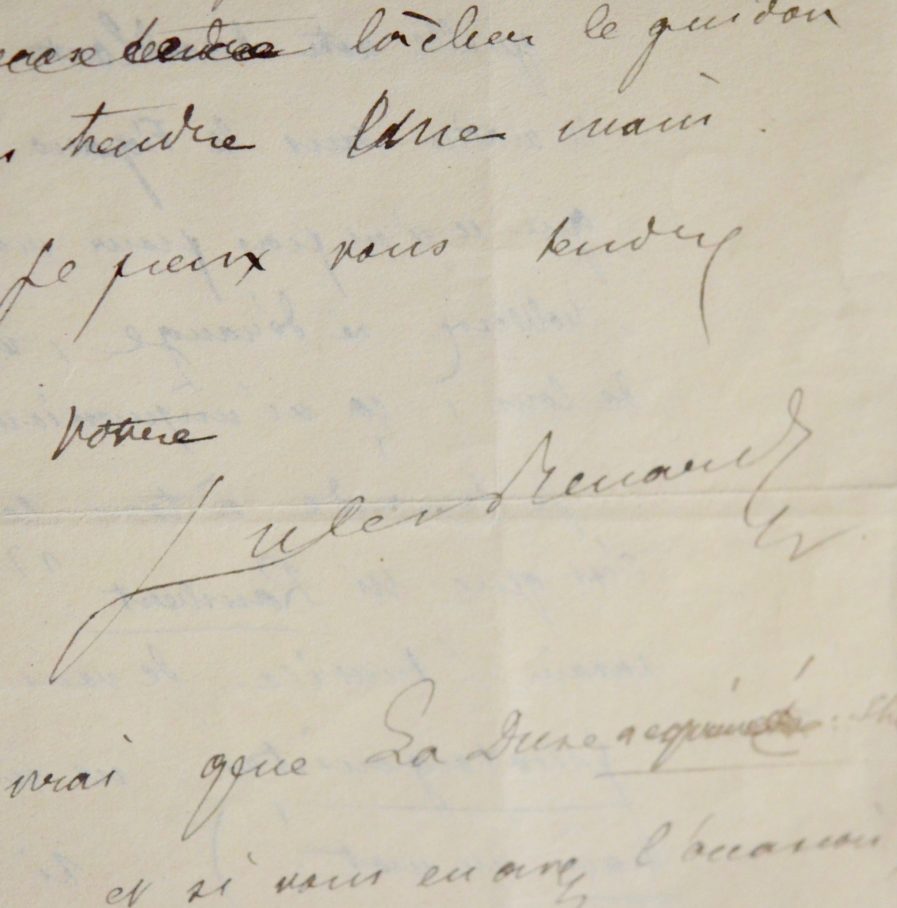 lâcher le guidon
tendre une main.
Je peux vous tendre
votre
Jules Renard
vrai que La Duse
et si vous en avez l'occasion